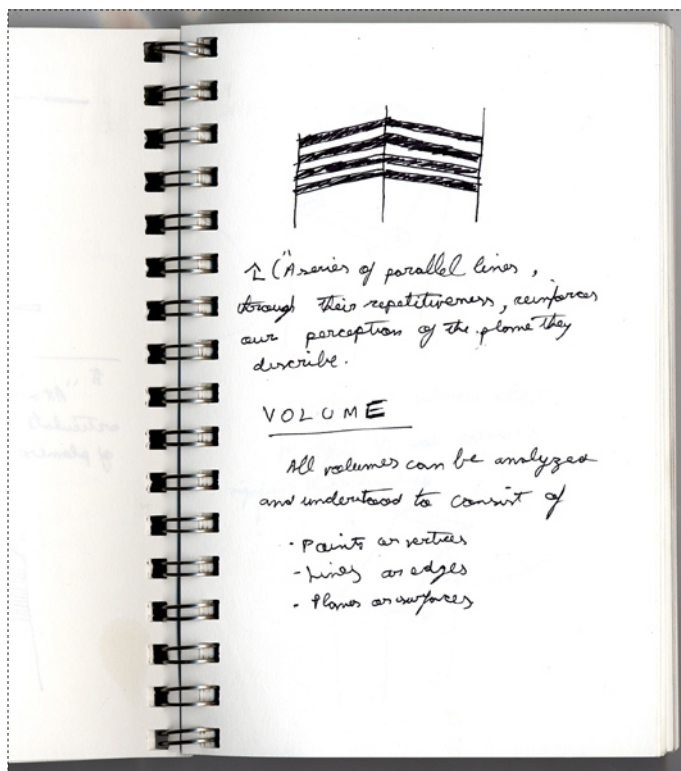 ↑ ("A series of parallel lines,
through their repetitiveness, reinforces
our perception of the plane they
describe.
VOLUME
All volumes can be analyzed
and understood to consist of
- Points or vertices
- Lines or edges
- Planes or surfaces